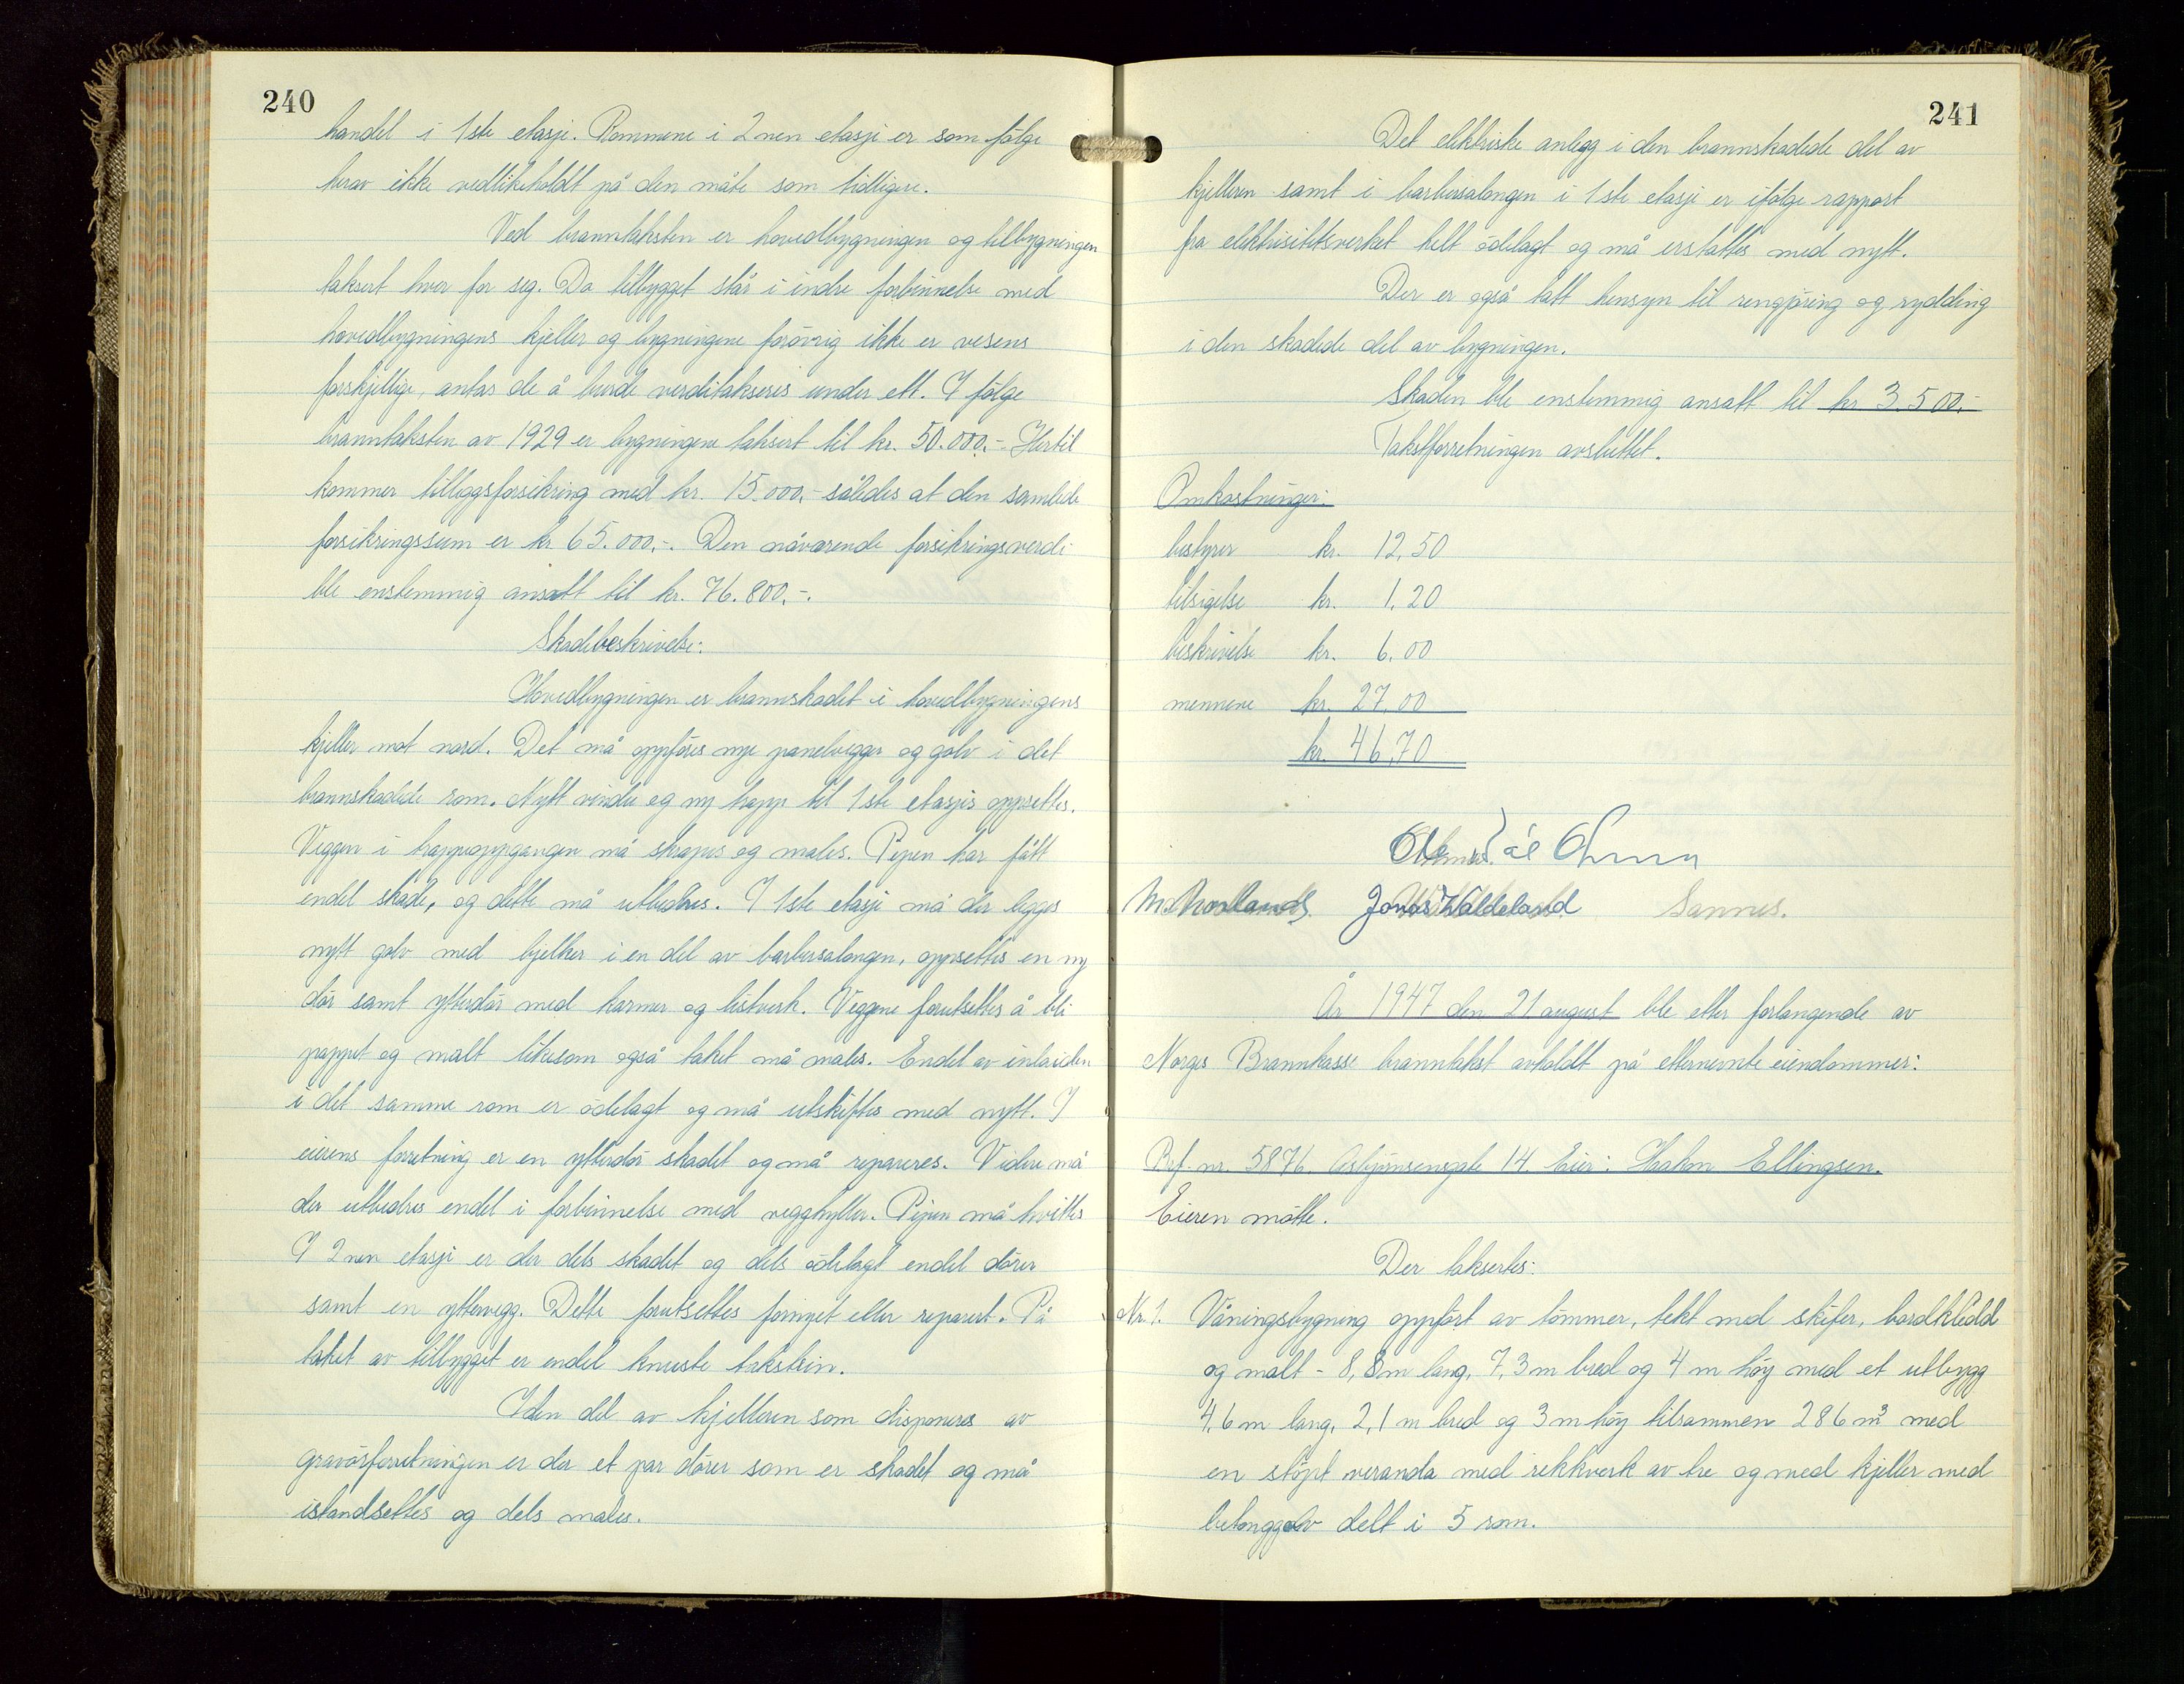 240
handel i 1ste etasje. Rommene i 2nen etasje er som følge
herav ikke vedlikeholdt på den måte som tidligere.
Ved branntaksten er hovedbygningen og tilbygningen
taksert hver for seg. Da tilbygget står i indre forbinnelse med
hovedbygningens kjeller og bygningene forøvrig ikke er vesens
forskjellige, antas de å burde verditakseres under ett. I følge
branntaksten av 1929 er bygningene taksert til kr. 50.000,- Hertil
kommer tilleggsforsikring med kr. 15.000,- således at den samlede
forsikringssum er kr 65.000,-. Den nåværende forsikringsverdi
ble enstemmig ansatt til kr. 76.800,-.
Skadebeskrivelse:
Hovedbygningen er brannskadet i hovedbygningens
kjeller mot nord. Det må oppføres nye panelvegger og golv i det
brannskadede rom. Nytt vindu og ny trapp til 1ste etasjes oppsettes.
Veggen i trappeoppgangen må skrapes og males. Pipen har fått
endel skade, og dette må utbedres. I 1ste etasje må der legges
nytt golv med bjelker i en del av barbersalongen, oppsettes en ny
dør samt ytterdør med karmer og listverk. Veggene forutsettes å bli
pappet og malt likesom også taket må males. Endel av inlaiden
i det samme rom er ødelagt og må utskiftes med nytt. I
eierens forretning er en ytterdør skadet og må repareres. Videre må
der utbedres endel i forbinnelse med vegghyller. Pipen må hvittes
I 2nen etasje er der dels skadet og dels ødelagt endel dører
samt en yttervegg. Dette forutsettes fornyet eller reparert. På
taket av tilbygget er endel knuste takstein.
I den del av kjelleren som disponeres av
gravørforretningen er der et par dører som er skadet og må
istandsettes og dels males.
241
Det elektriske anlegg i den brannskadede del av
kjelleren samt i barbersalongen i 1ste etasje er ifølge rapport
fra elektrisitetsverket helt ødelagt og må erstattes med nytt.
Der er også tatt hensyn til rengjøring og rydding
i den skadede del av bygningen.
Skaden ble enstemmig ansatt til kr 3.500,-
Takstforretningen avsluttet.
Omkostninger:
bestyrer kr. 12,50
tilsigelse kr. 1,20
beskrivelse kr. 6,00
mennene kr. 27,00
kr. 46,70
Jonas Waldeland Sannes.
År 1947 den 21 august ble etter forlangende av
Norges Brannkasse branntakst avholdt på etternevnte eiendommer:
Br.f. nr. 5876 Asbjørnsensgate 14. Eier: Hakon Ellingsen.
Eieren møtte.
Der taksertes:
Nr. 1. Våningsbygning oppført av tømmer, tekt med skifer, bordkledd
og malt - 8,8m lang, 7,3m bred og 4 m høy med et utbygg
4,6 m lang, 2,1 m bred og 3 m høy tilsammen 286 m³ med
en støpt veranda med rekkverk av tre og med kjeller med
betonggolv delt i 5 rom.